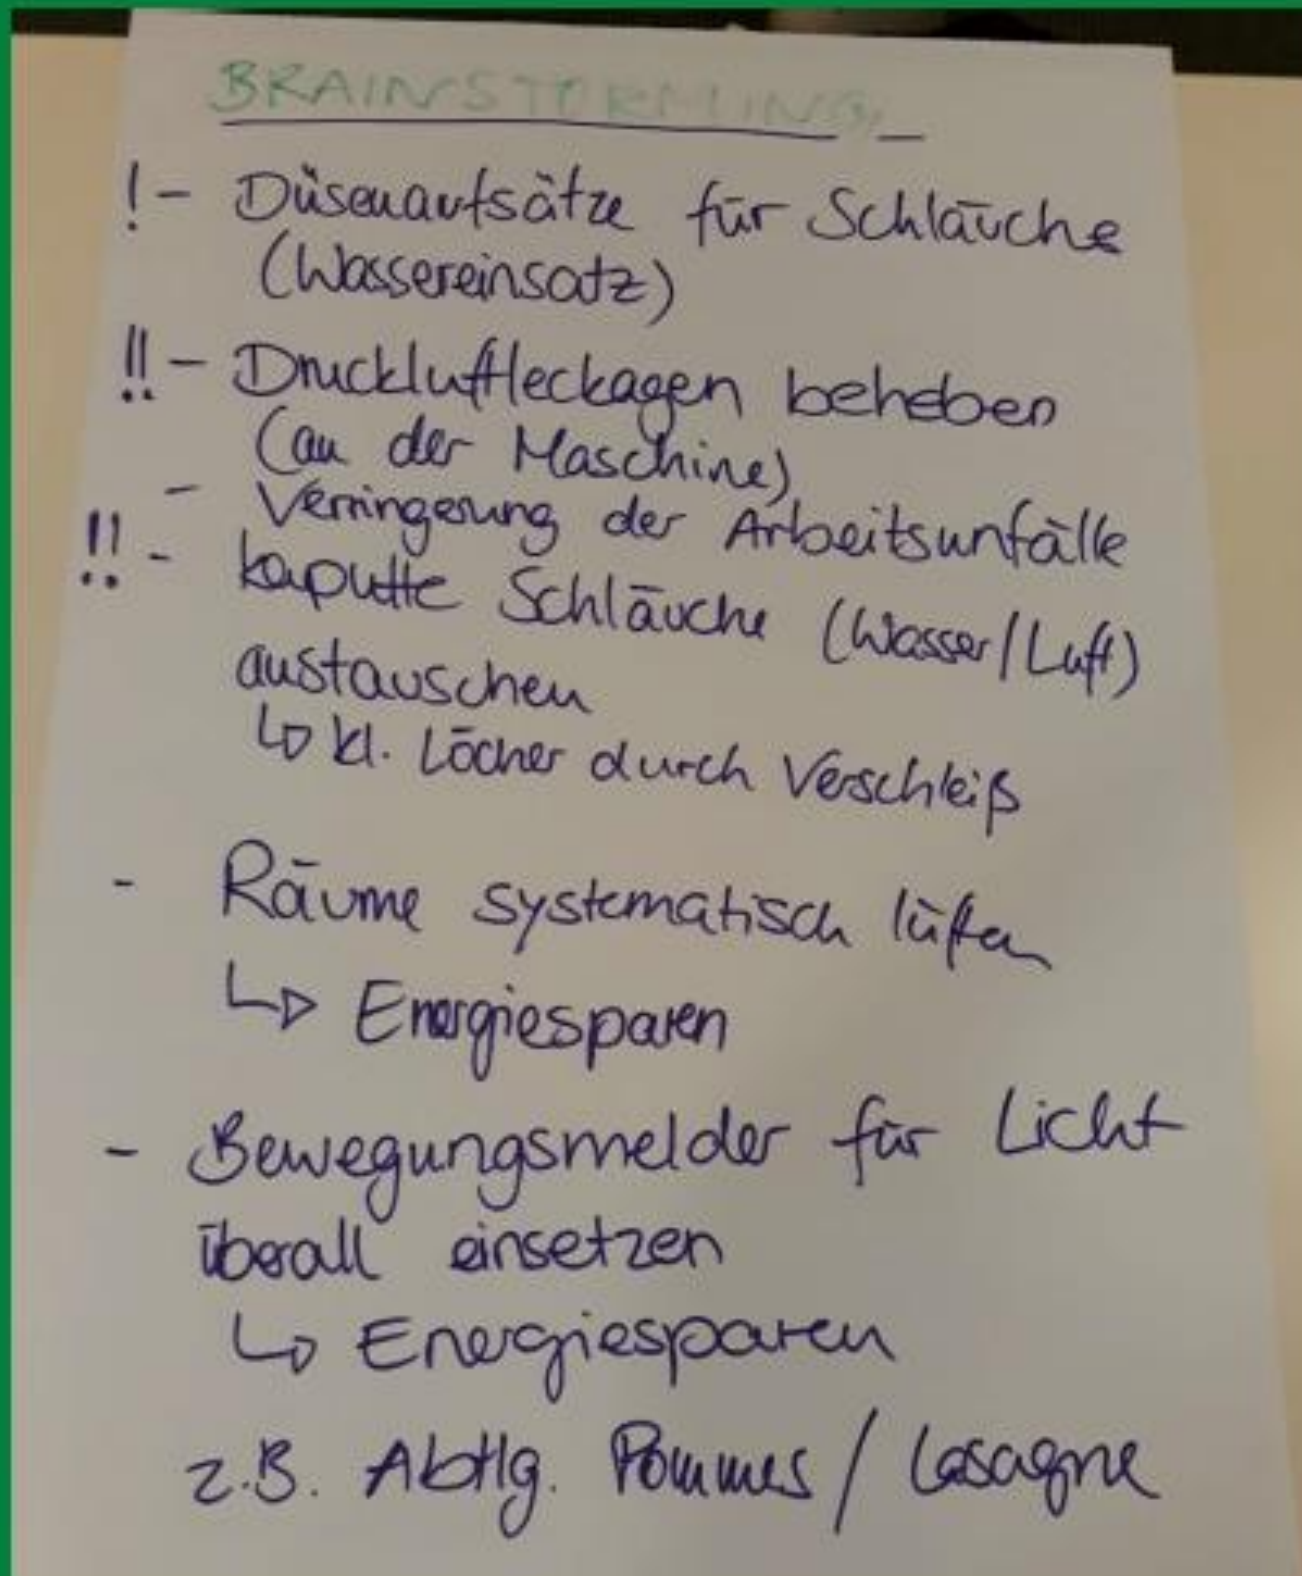 BRAINSTORMING
! - Düsenaufsätze für Schläuche
(Wassereinsatz)
!! - Druckluftleckagen beheben
(an der Maschine)
- Verringerung der Arbeitsunfälle
!! - kaputte Schläuche (Wasser/Luft)
austauschen
↳ kl. Löcher durch Verschleiß
- Räume systematisch lüften
↳ Energiesparen
- Bewegungsmelder für Licht
überall einsetzen
↳ Energiesparen
z.B. Abtlg. Pommes / Lasagne